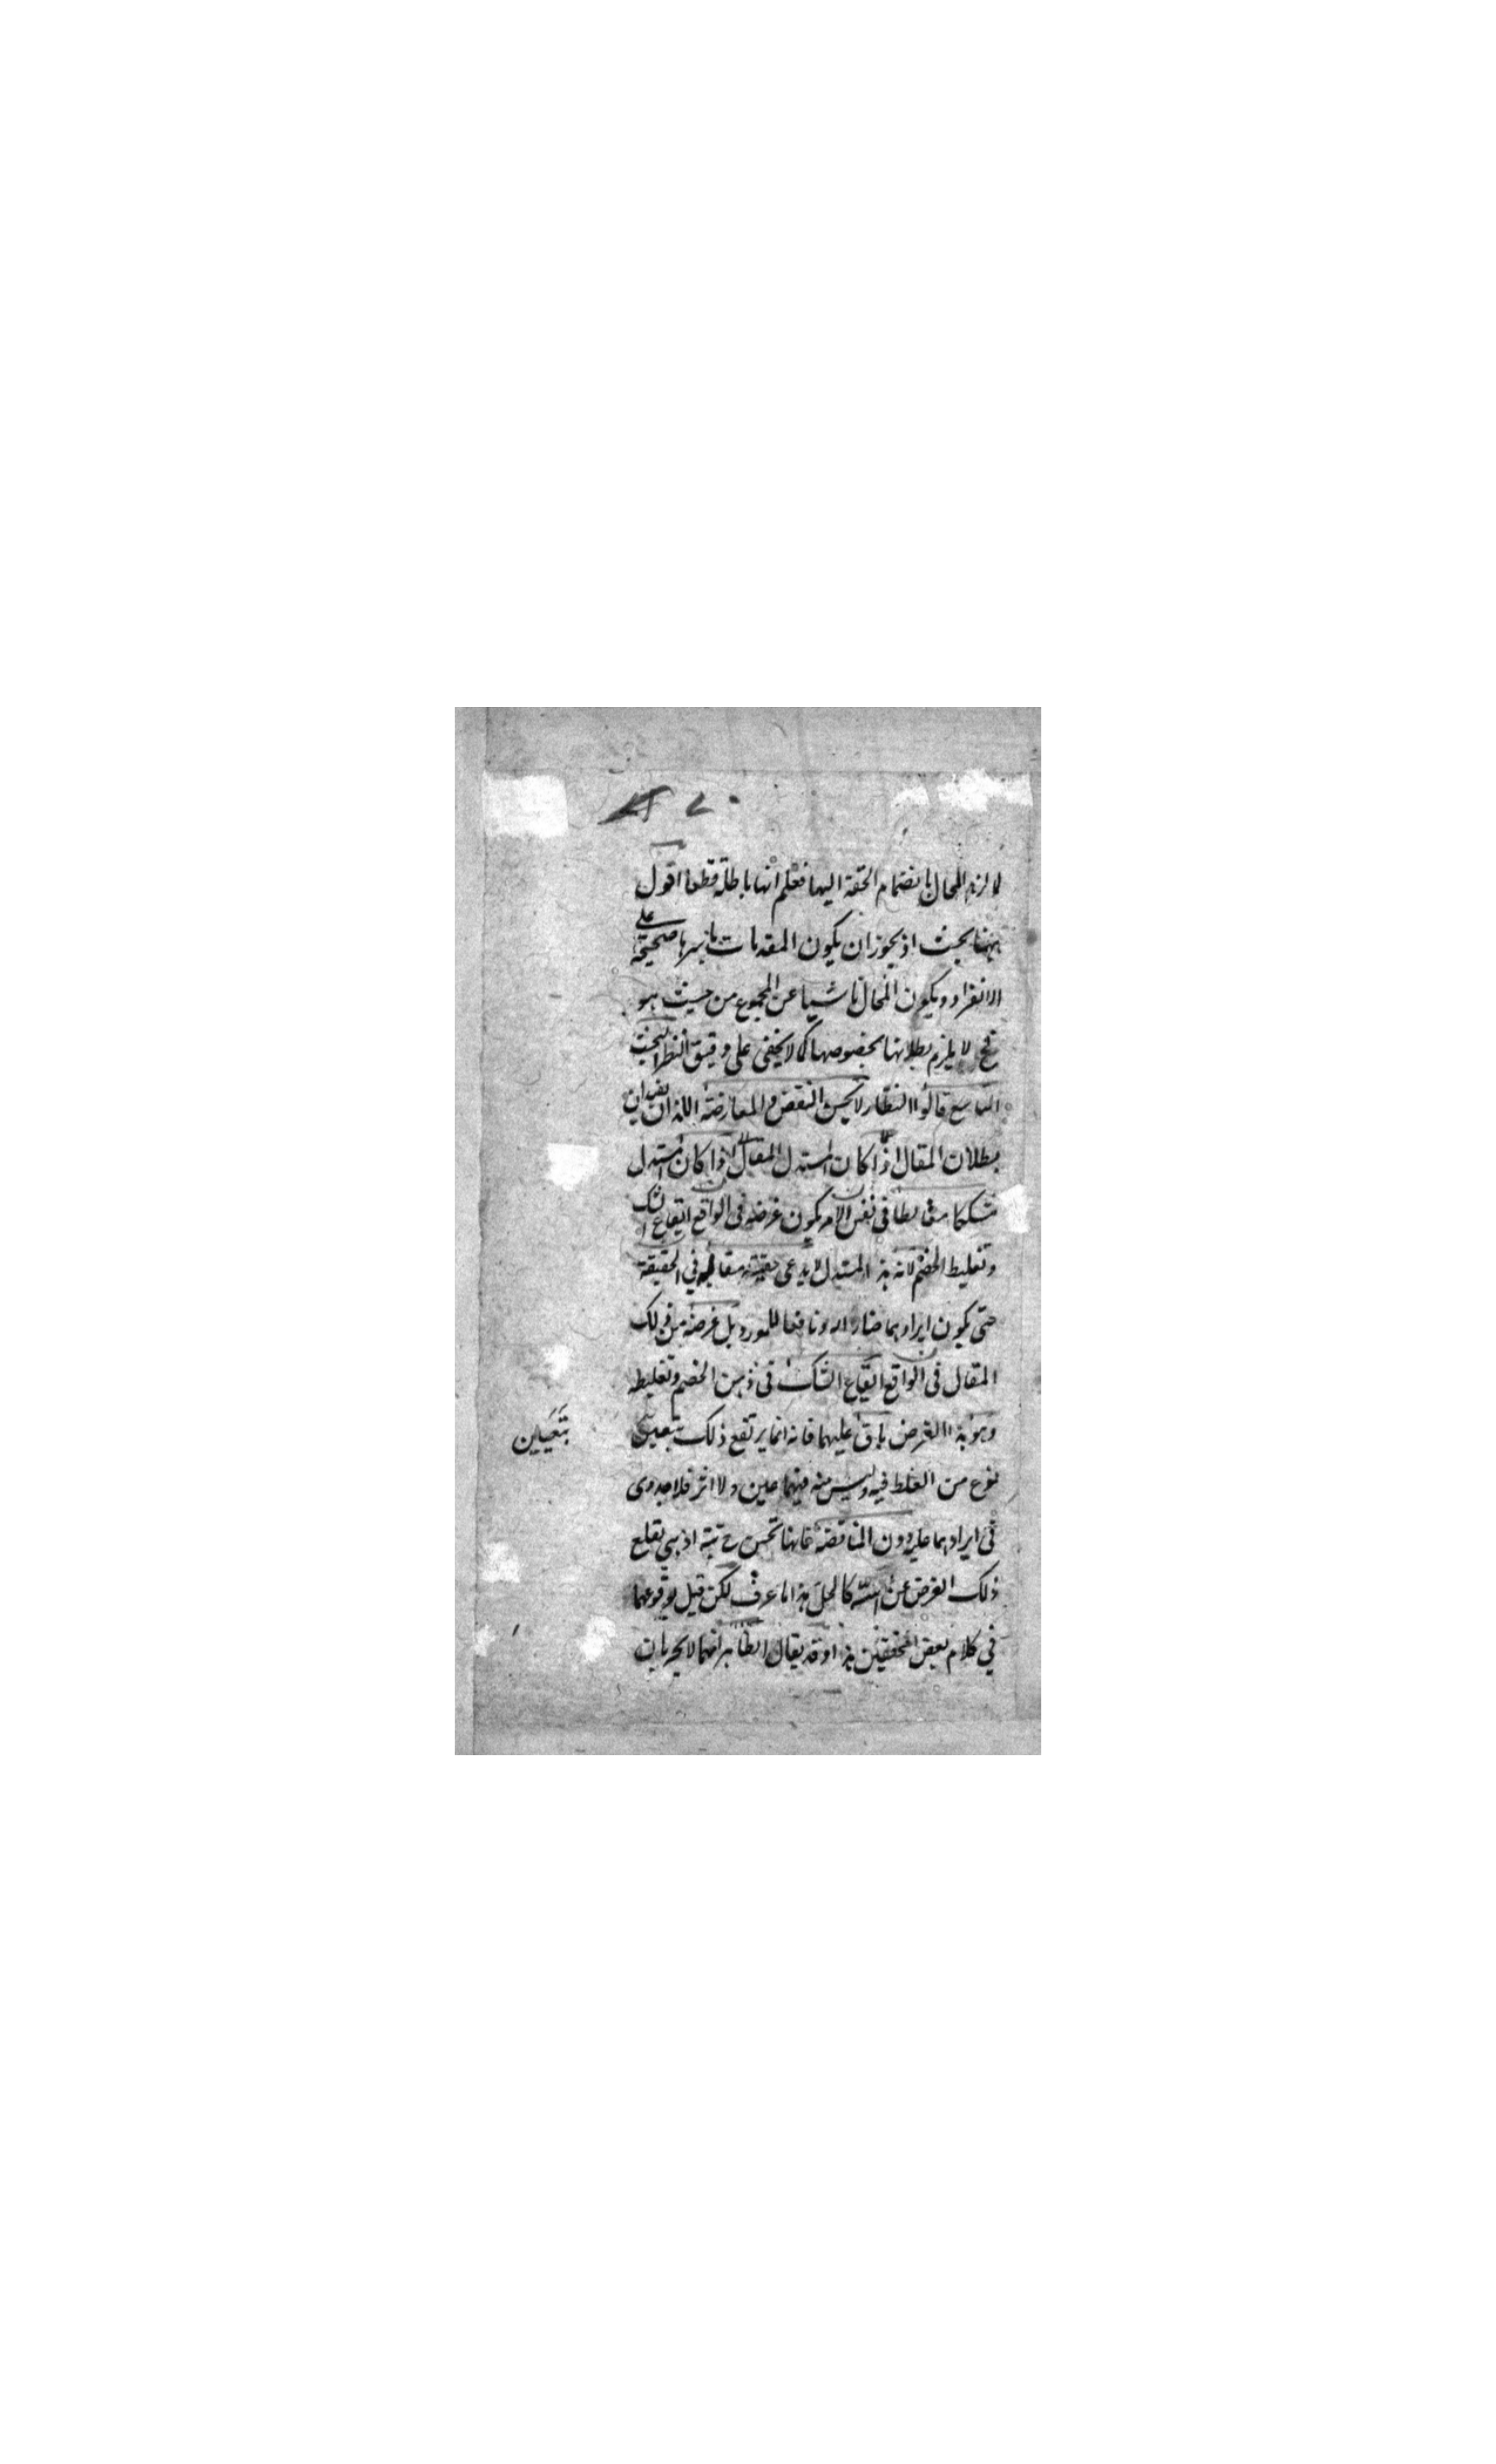 لا لزم المحال بانضمام الحقة اليها فعلم انها باطلة قطعا اقول
ههنا بحث اذ يجوز ان يكون المقدمات باسرها صحيحة على
الانفراد ويكون المحال ناشيا عن المجموع من حيث هو
فح لا يلزم بطلانها بخصوصها كما لا يخفى على دقيق النظر البحث
التاسع قالوا النظار لا يحسن النقض والمعارضة اللذان يفيدان
بطلان المقال اذا كان المستدل المقال اذا كان المستدل
مشككا مغالطا في نفس الامر يكون غرضه في الواقع ايقاع الشك
وتغليط الخصم لانه هذا المستدل لا يدعى حقية مقاله في الحقيقة
حتى يكون ايرادهما ضارا له ونافعا للمورد بل غرضه من ذلك
المقال في الواقع ايقاع الشك في ذهن الخصم وتغليطه
وهو هذا الغرض باق عليهما فانه انما يرتفع ذلك بتعين
بتعيين
نوع من الغلط فيه وليس منه فيهما عين ولا اثر فلا جدوى
في ايرادهما عليه دون المناقضة فانها تحسن ح بتة اذ هي تقلع
ذلك الغرض عن اسه كالحل هذا ما عرف لكن قيل بوقوعهما
في كلام بعض المحققين هذا وقد يقال الظاهر انهما لا يجريان